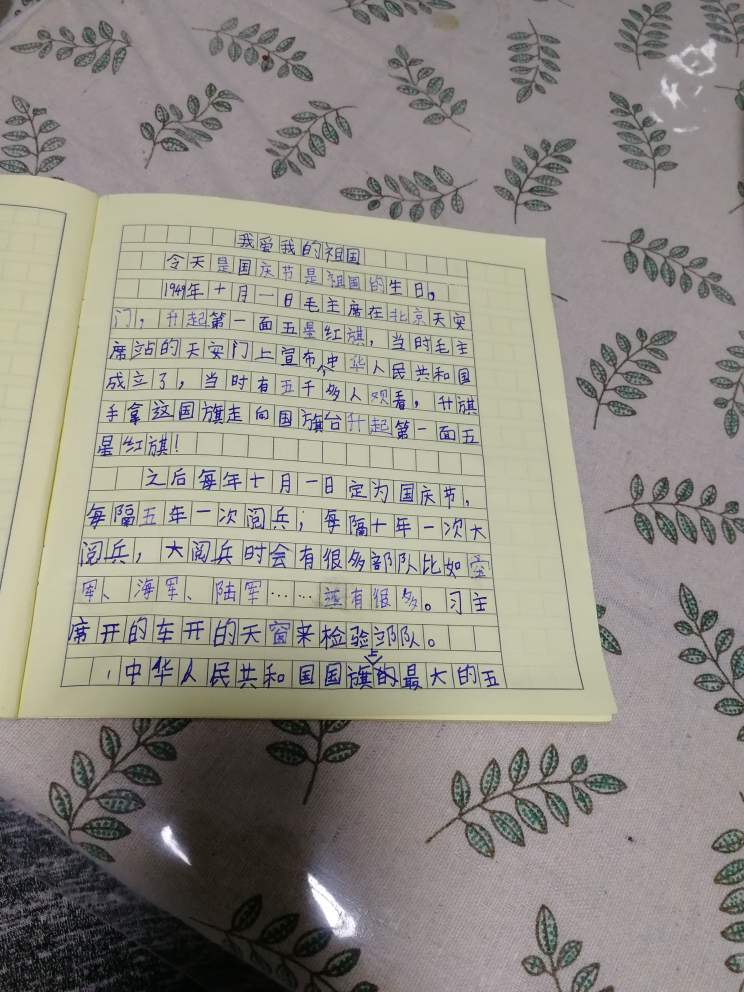 我爱我的祖国
今天是国庆节是祖国的生日。
1949年十月一日毛主席在北京天安
门，升起第一面五星红旗，当时毛主
席站的天安门上宣布中华人民共和国
成立了，当时有五千多人观看，升旗
手拿这国旗走向国旗台升起第一面五
星红旗！
之后每年十月一日定为国庆节，
每隔五年一次阅兵；每隔十年一次大
阅兵，大阅兵时会有很多部队比如空
军、海军、陆军……还有很多。习主
席开的车开的天窗来检验部队。
中华人民共和国国旗上的最大的五